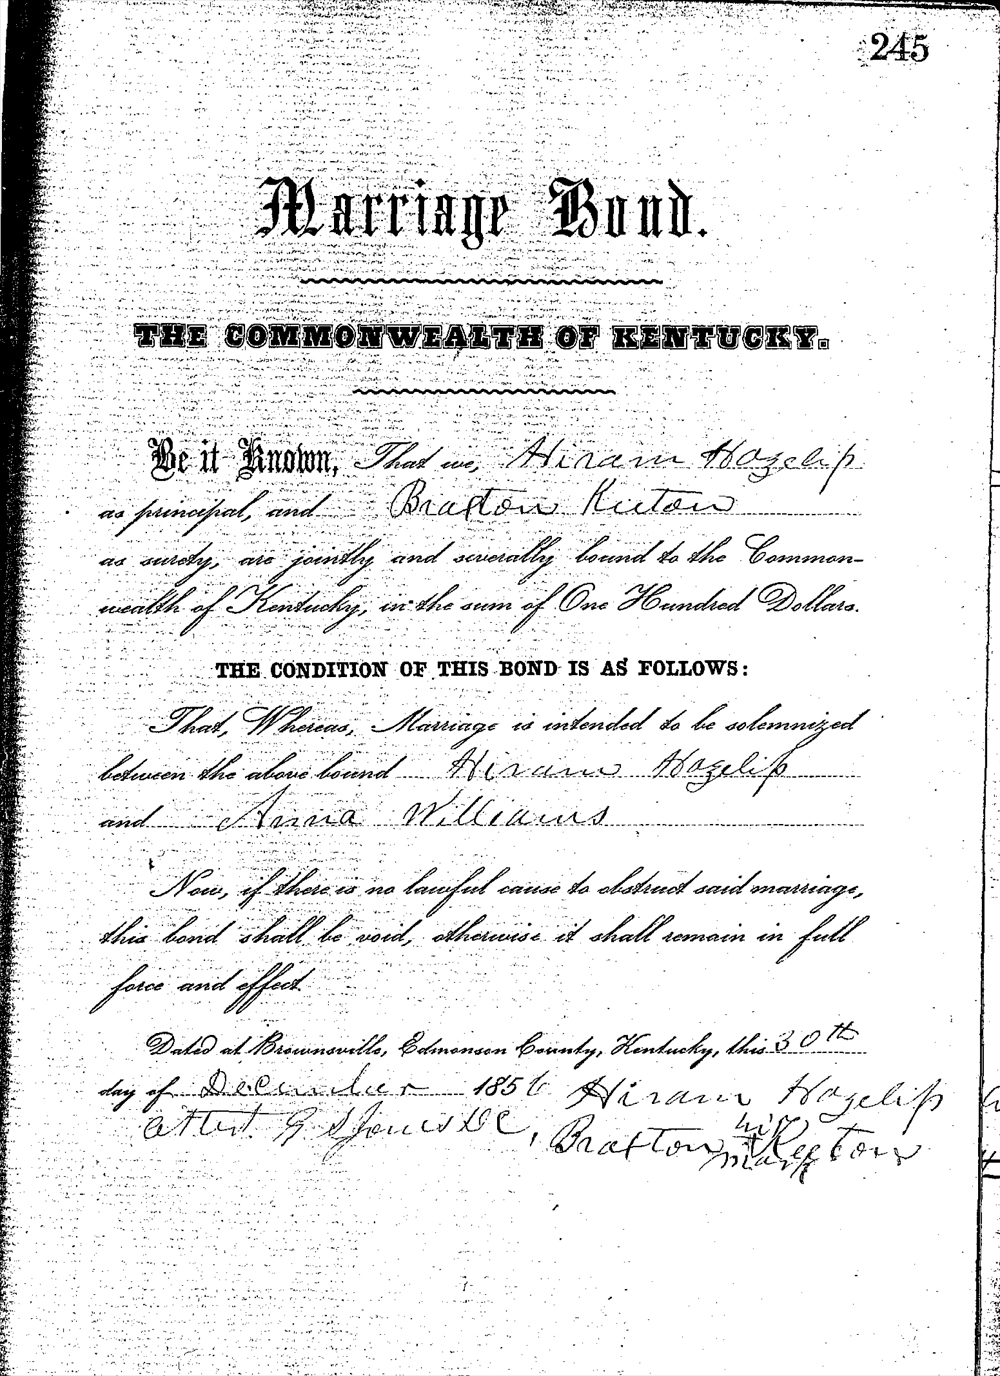 245
Marriage Bond.
THE COMMONWEALTH OF KENTUCKY.
Be it Known, That we, Hiram Hazelip
as principal, and Braxton Keeton
as surety, are jointly and severally bound to the Common-
wealth of Kentucky, in the sum of One Hundred Dollars.
THE CONDITION OF THIS BOND IS AS FOLLOWS:
That, Whereas, Marriage is intended to be solemnized
between the above bound Hiram Hazelip
and Anna Williams
Now, if there is no lawful cause to obstruct said marriage,
this bond shall be void, otherwise it shall remain in full
force and effect.
Dated at Brownsville, Edmonson County, Kentucky, this 30th
day of December 1856 Hiram Hazelip
attest. G S Jones DC, Braxton his Keeton
mark